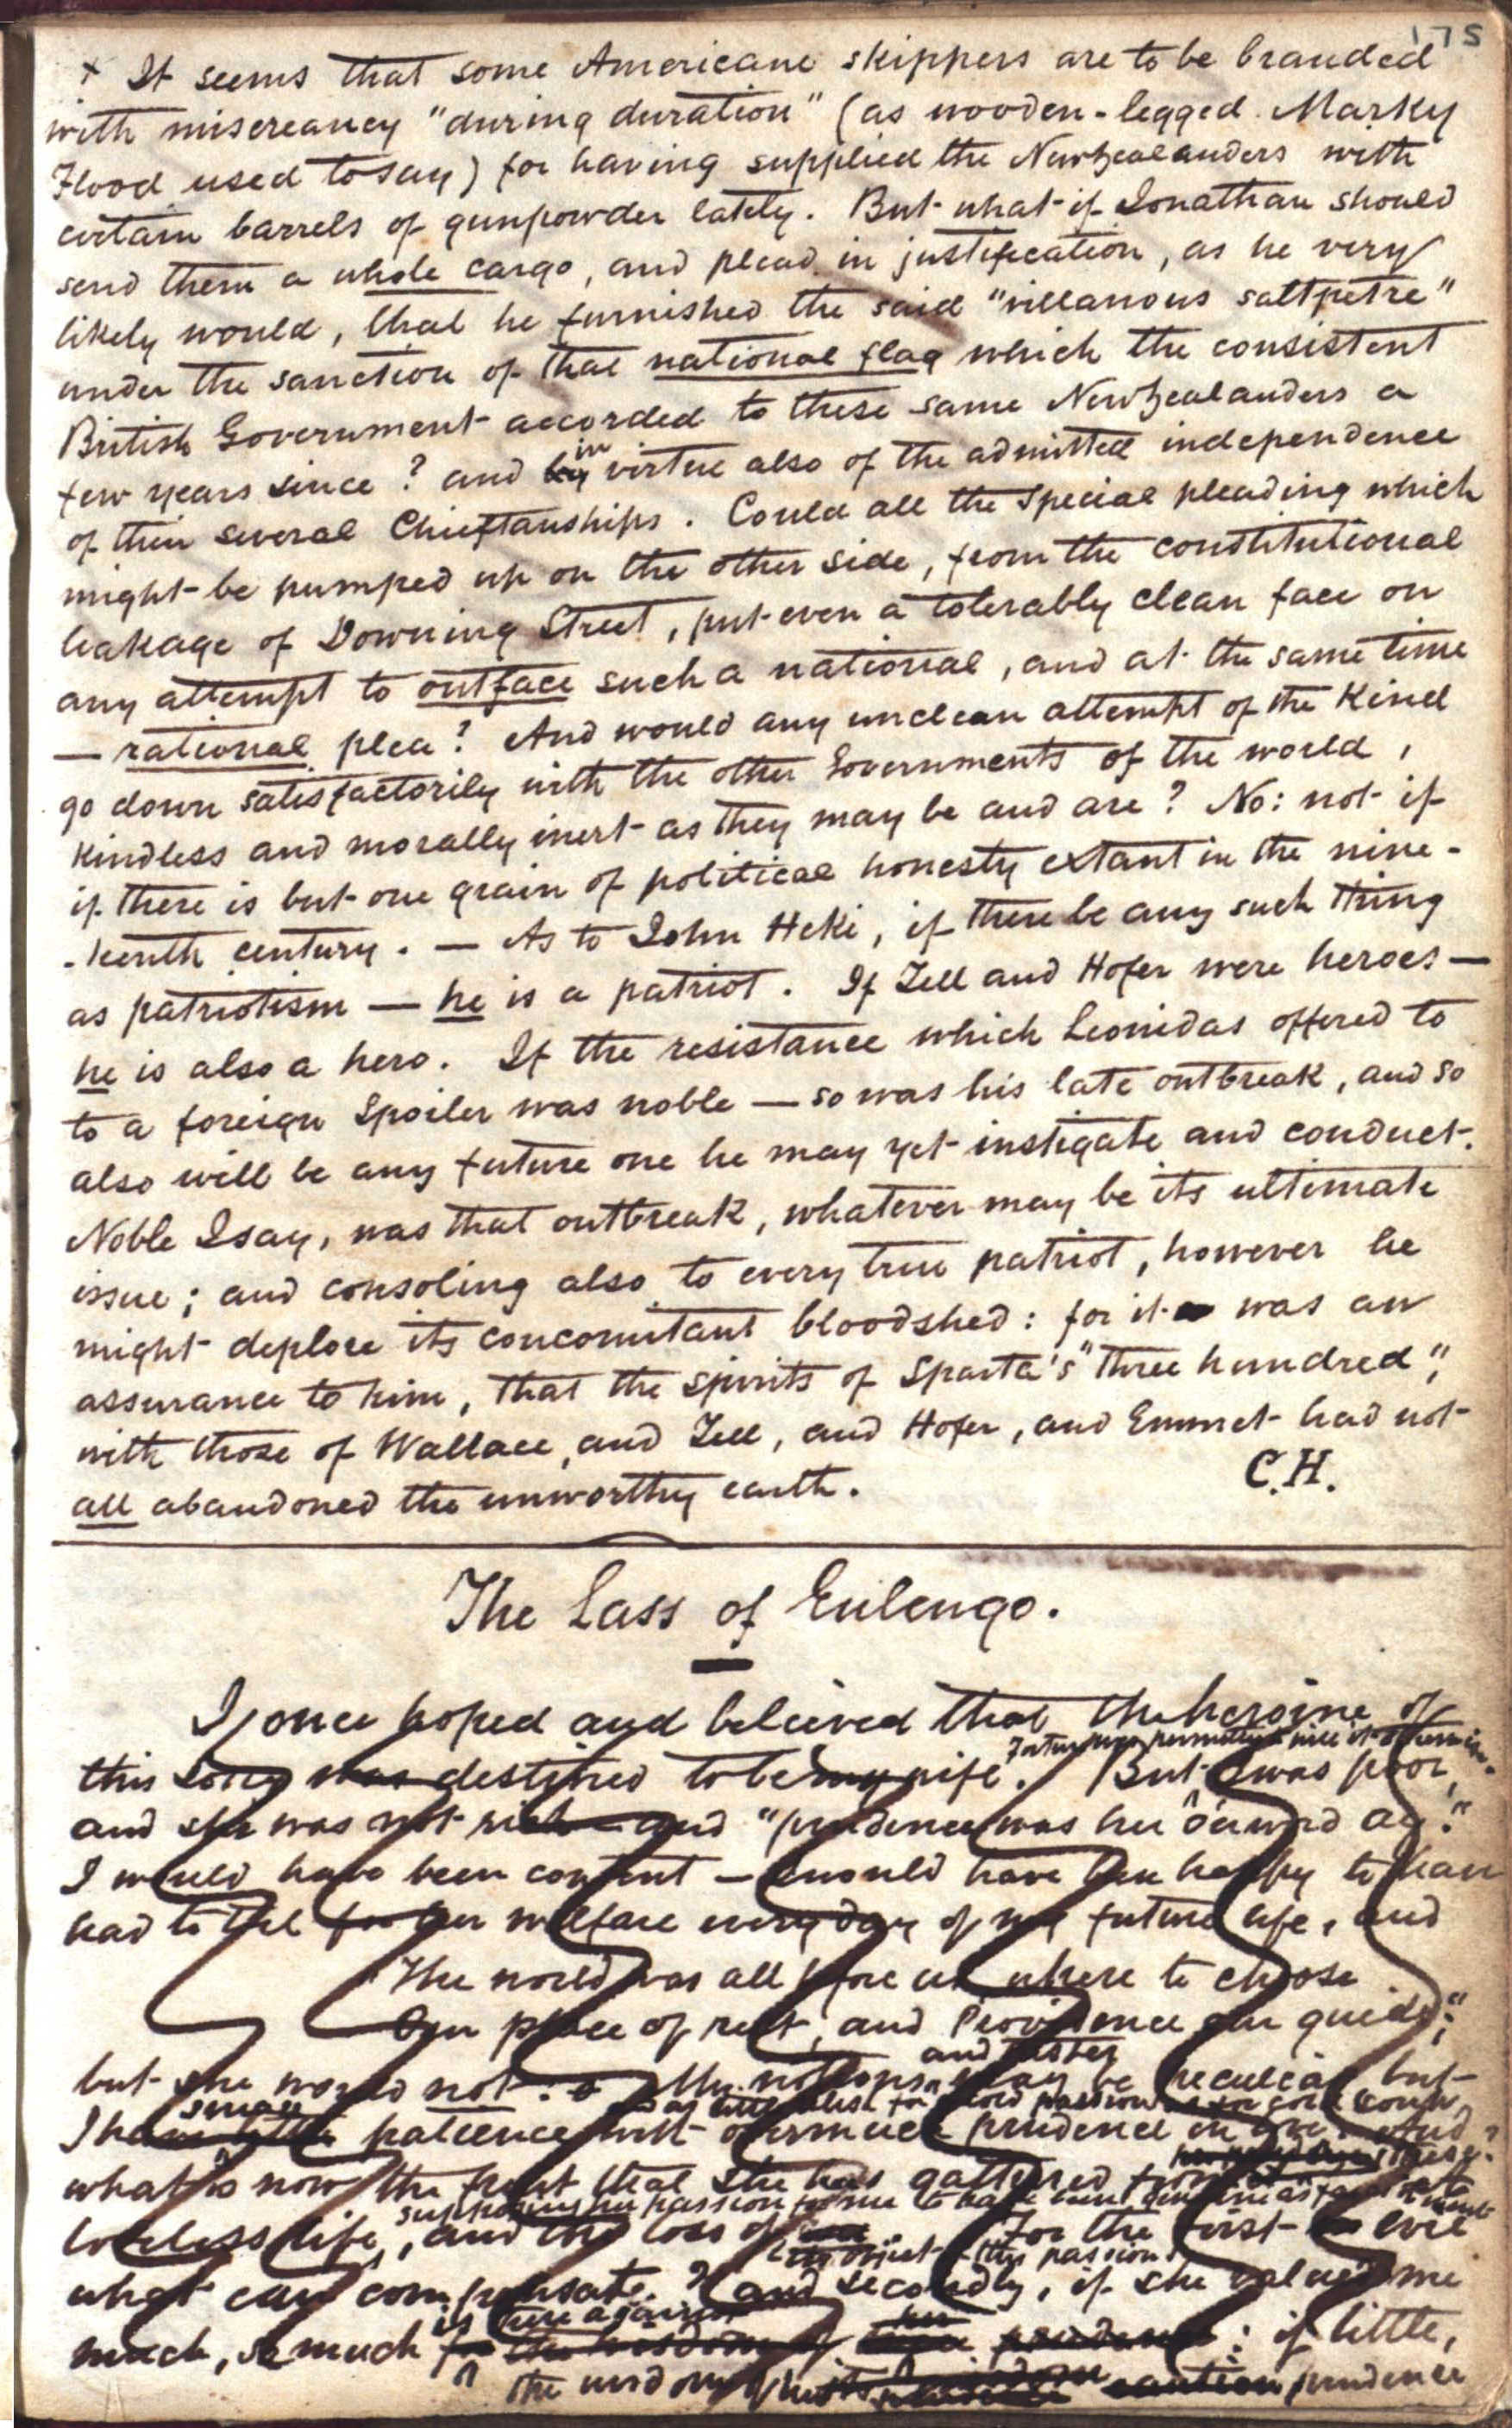 175
+ It seems that some Americane skippers are to be branded
with miscreancy "during duration" (as wooden-legged Marky
Flood used to say) for having supplied the Newzealanders with
certain barrels of gunpowder lately. But what if Jonathan should
send them a whole cargo, and plead in justification, as he very
likely would, that he furnished the said "villanous saltpetre"
under the sanction of that national flag which the consistent
British Government accorded to these same Newzealanders a
few years since? and by in virtue also of the admitted independence
of their several Chieftanships. Could all the special pleading which
might be pumped up on the other side, from the constitutional
leakage of Downing Street, put even a tolerably clean face on
any attempt to outface such a national, and at the same time
— rational plea? And would any unclean attempt of the kind
go down satisfactorily with the other Governments of the world,
kindless and morally inert as they may be and are? No: not if
if there is but one grain of political honesty extant in the nine-
-teenth century. — As to John Heki, if there be any such thing
as patriotism — he is a patriot. If Tell and Hofer were heroes —
he is also a hero. If the resistance which Leonidas offered to
to a foreign Spoiler was noble — so was his late outbreak, and so
also will be any future one he may yet instigate and conduct.
Noble I say, was that outbreak, whatever may be its ultimate
issue; and consoling also to every true patriot, however he
might deplore its concomitant bloodshed: for it was an
assurance to him, that the spirits of Sparta's "three hundred",
with those of Wallace, and Tell, and Hofer, and Emmet had not
all abandoned the unworthy earth.
C.H.
The Lass of Eulengo.
I once hoped and believed that the heroine of
this song was destined to be my wife. But I was poor,
and she was not rich and "prudence was her onward
I would have been content — would have been happy to have
had to toil for her welfare every day of my future life, and
"The world was all before us where to choose
Our place of rest, and Providence our guide;"
but she would not: My notions and tastes may be peculiar but
I have little small patience with overmuch prudence in love. And
what is now the fruit that she has gathered from
loveless life, and the loss of For the first evil
its object this passion
what can compensate? and secondly, if she valued me
much, so much the wisdom of her prudence: if little,
the wisdom of caution prudence